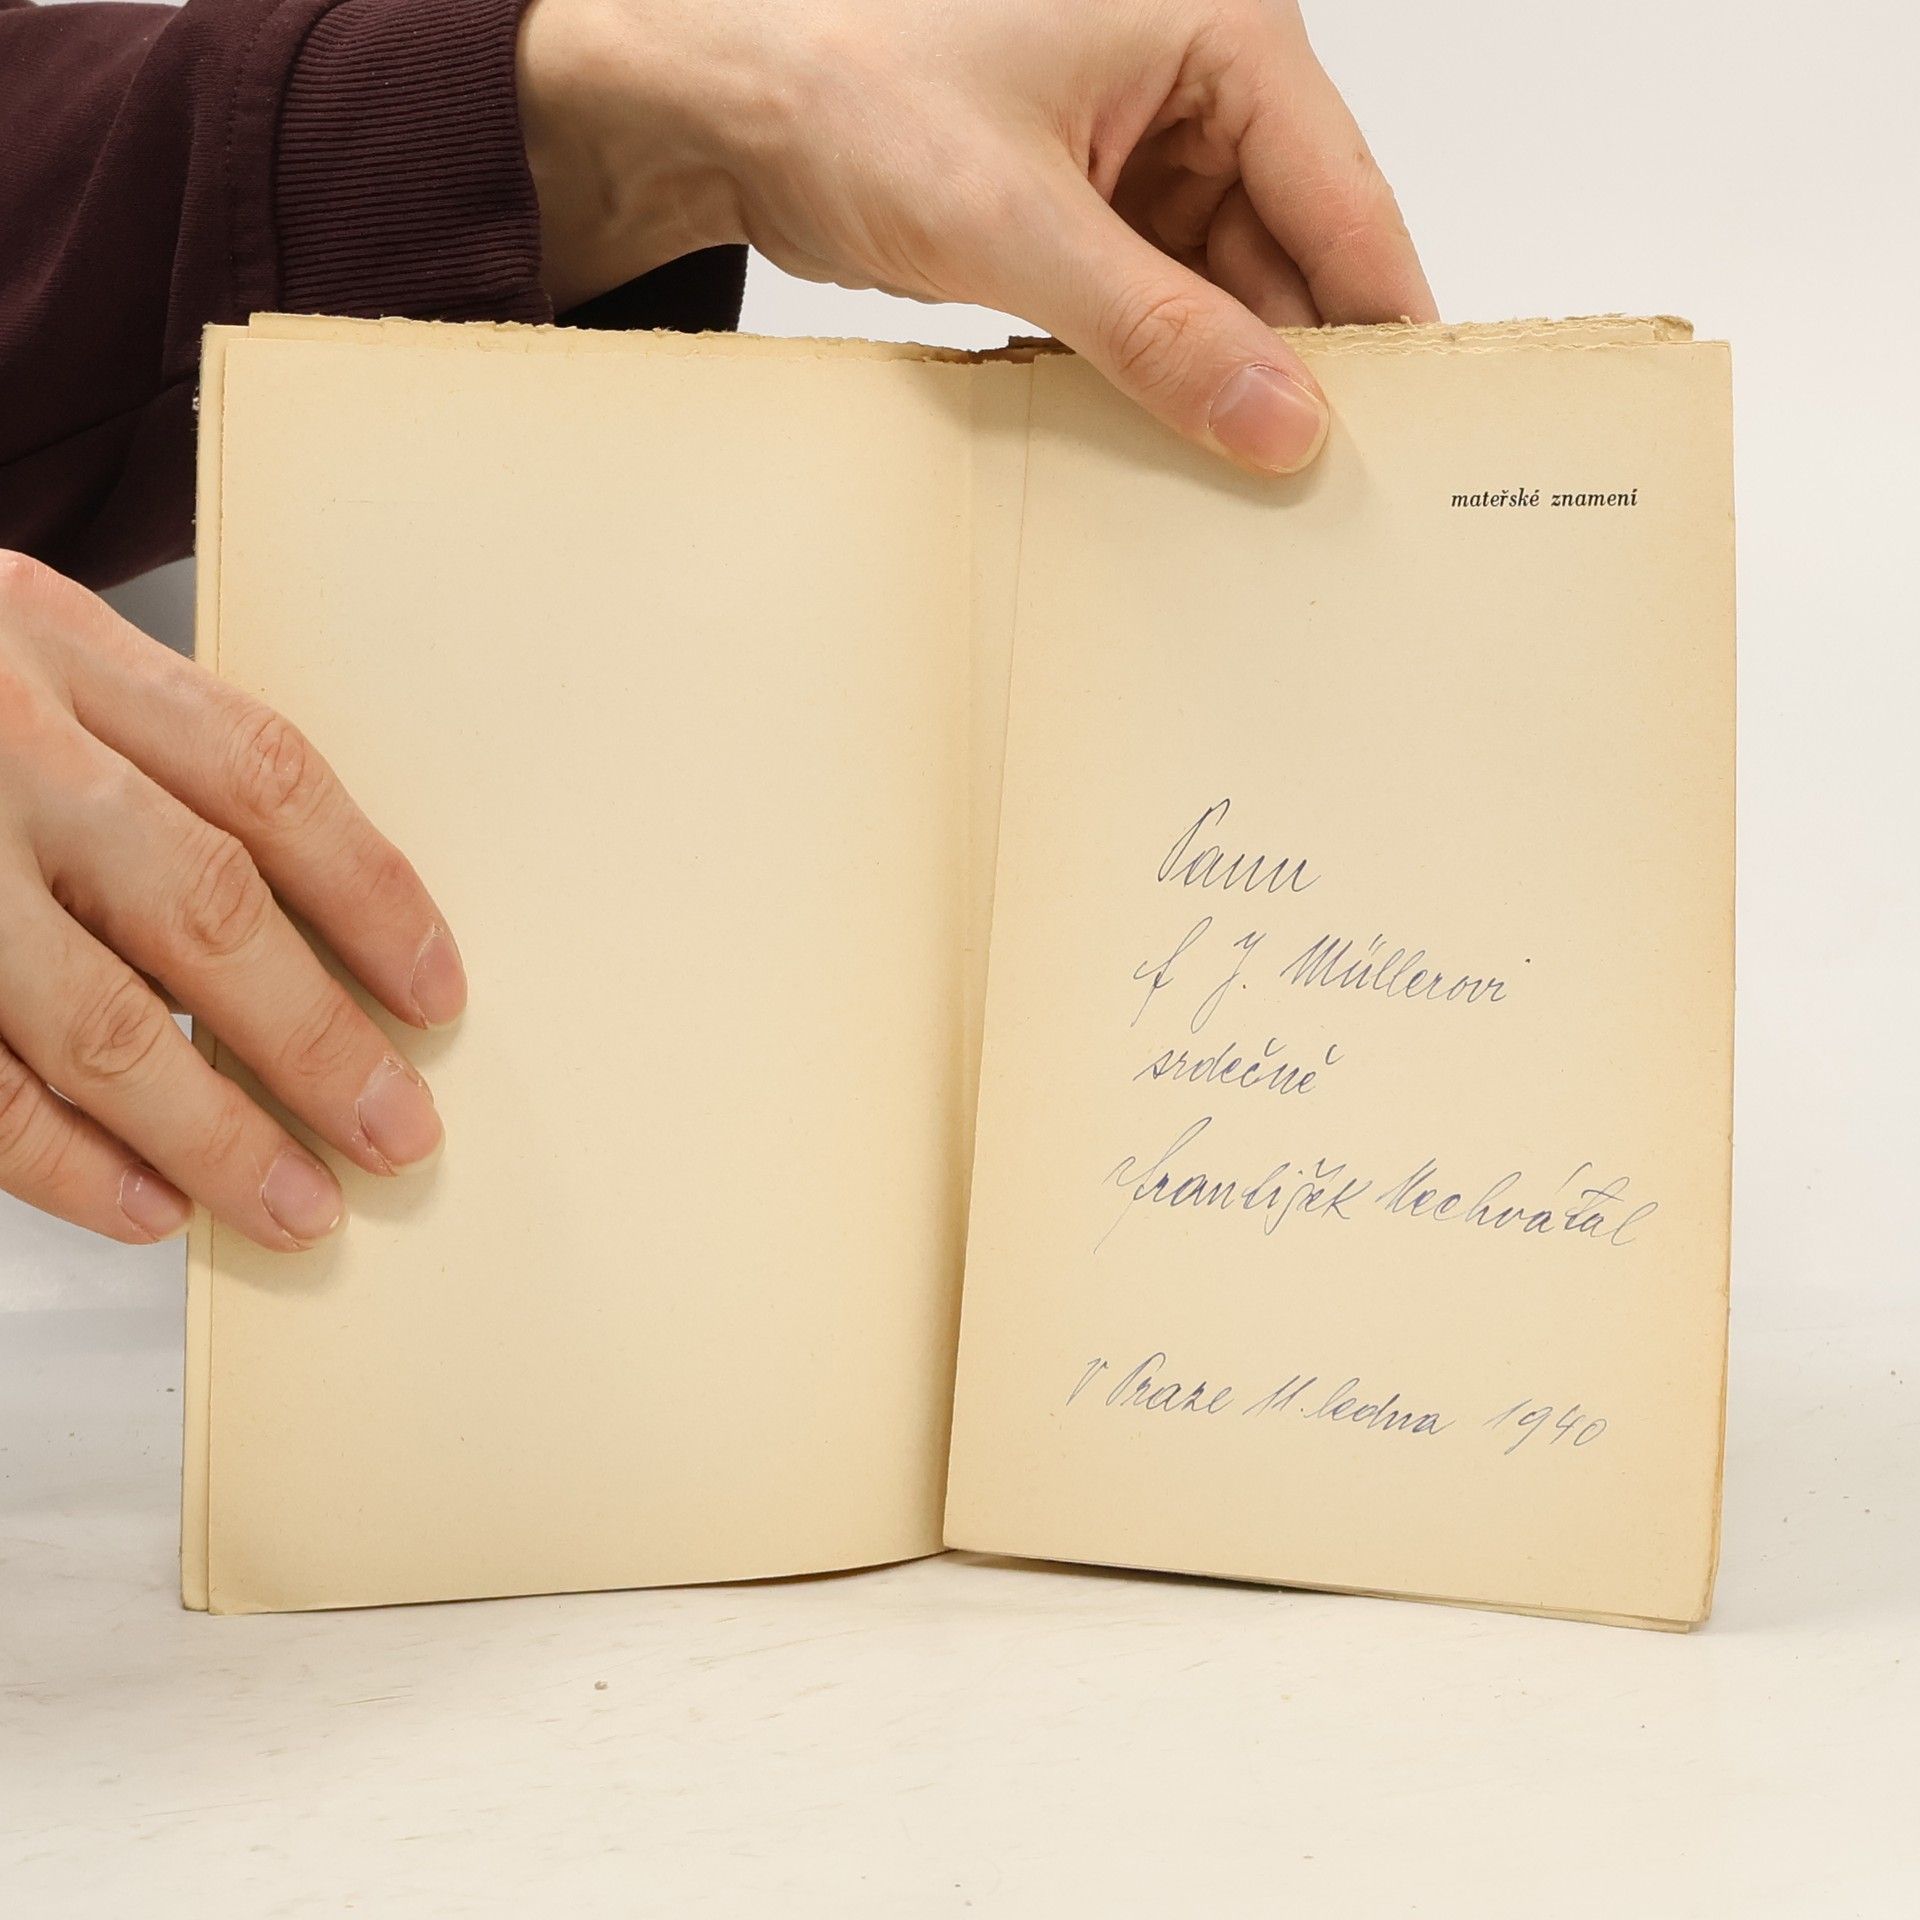 mateřské znamení
Panu
F J. Müllerovi
srdečně
František Nechvátal
V Praze 11. ledna 1940